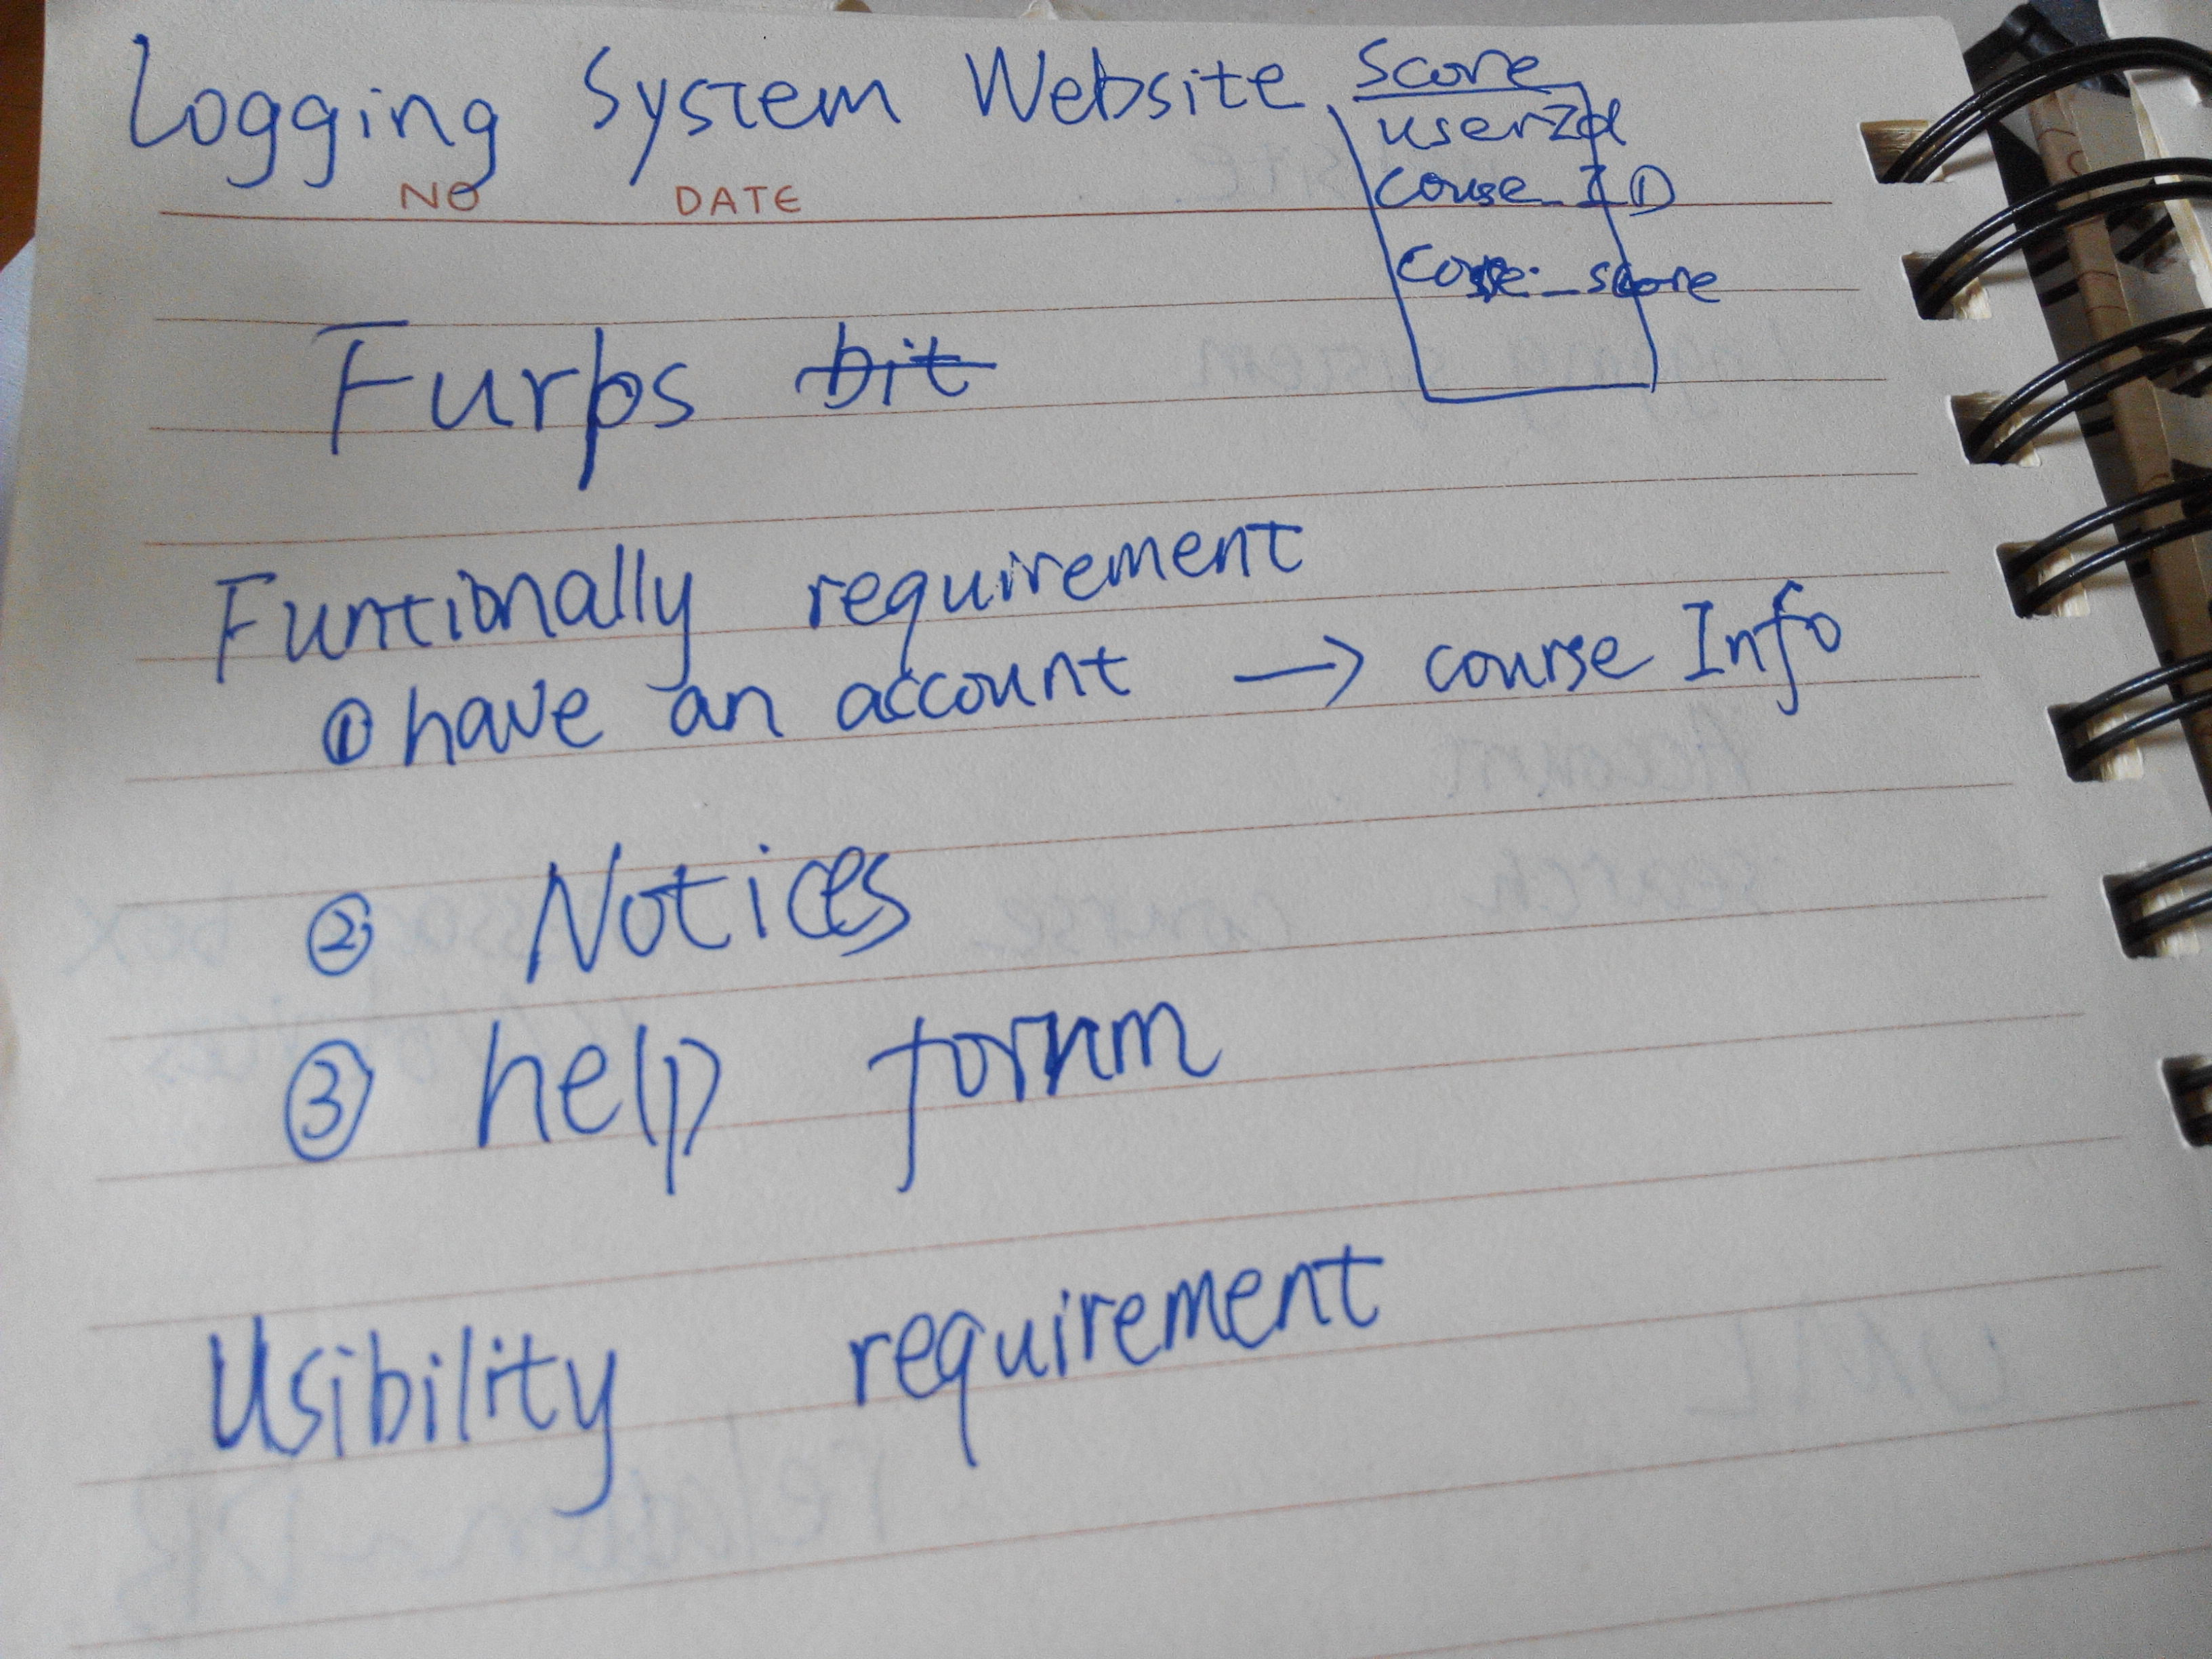 Logging System Website
Score
userId
course_ID
course_score
NO DATE
Furps bit
Funtionally requirement
① have an account → course Info
② Notices
③ help forum
Usibility requirement